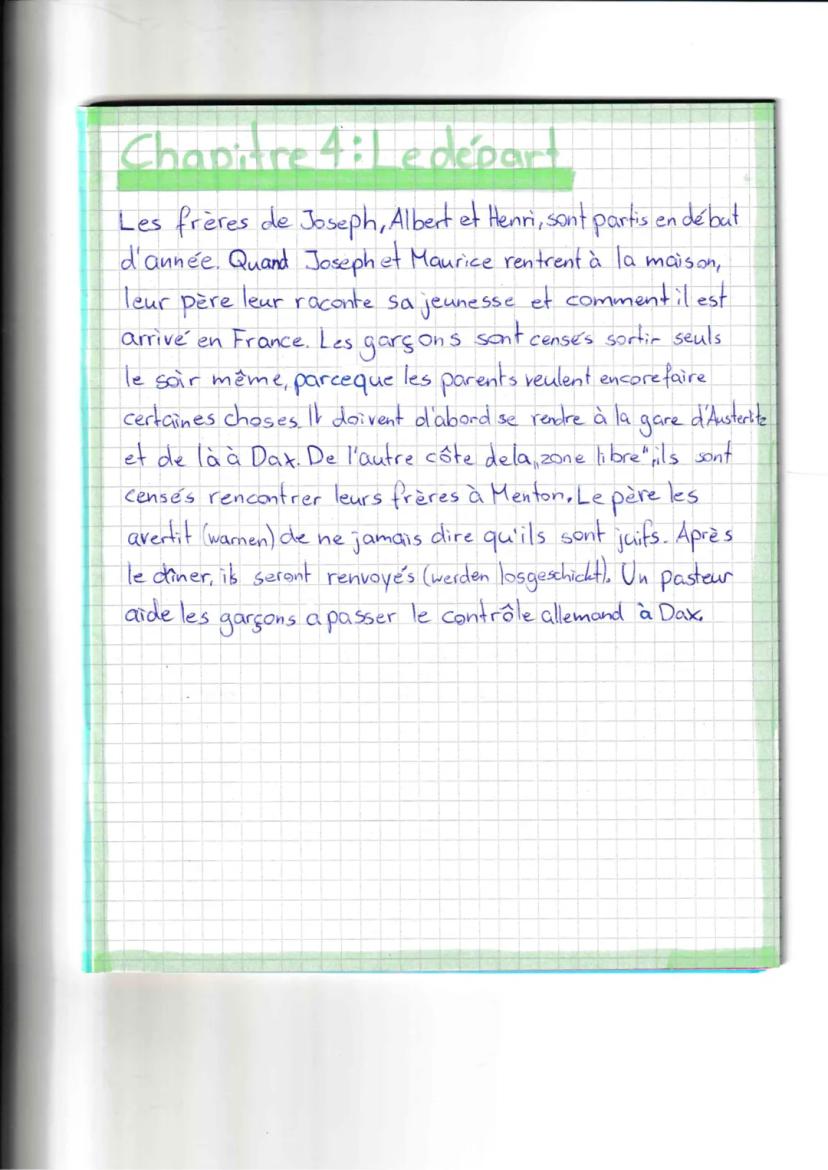 Chapitre 4: Le départ
Les frères de Joseph, Albert et Henri, sont partis en début
d'année. Quand Joseph et Maurice rentrent à la maison,
leur père leur raconte sa jeunesse et comment il est
arrivé en France. Les garçons sont censés sortir seuls
le soir même, parceque les parents veulent encore faire
certaines choses. Il doivent d'abord se rendre à la gare d'Austerlitz
et de là à Dax. De l'autre côte de la „zone libre", ils sont
censés rencontrer leurs frères à Menton. Le père les
avertit (warnen) de ne jamais dire qu'ils sont juifs. Après
le dîner, ils seront renvoyés (werden losgeschickt). Un pasteur
aide les garçons a passer le contrôle allemand à Dax.